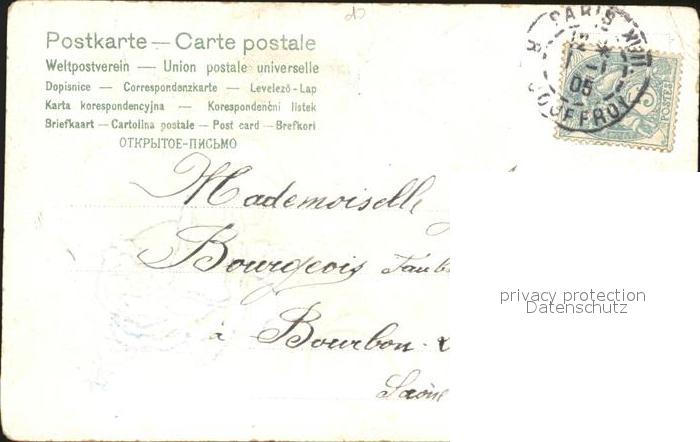 Postkarte — Carte postale
Weltpostverein — Union postale universelle
Dopisnice — Correspondenzkarte — Levelező-Lap
Karta korespondencyjna — Korespondenční listek
Briefkaart — Cartolina postale — Post card — Brefkort
ОТКРЫТОЕ-ПИСЬМО
PARIS
05
JOUFFROY
5
POSTES
Mademoiselle
Bourgeois
à Bourbon
Saône
privacy protection
Datenschutz